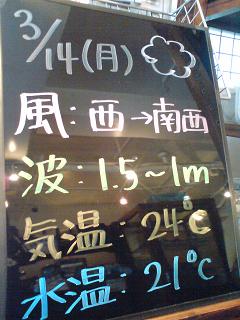 3/14(月)
風:西→南西
波:1.5~1m
気温:24℃
水温:21℃